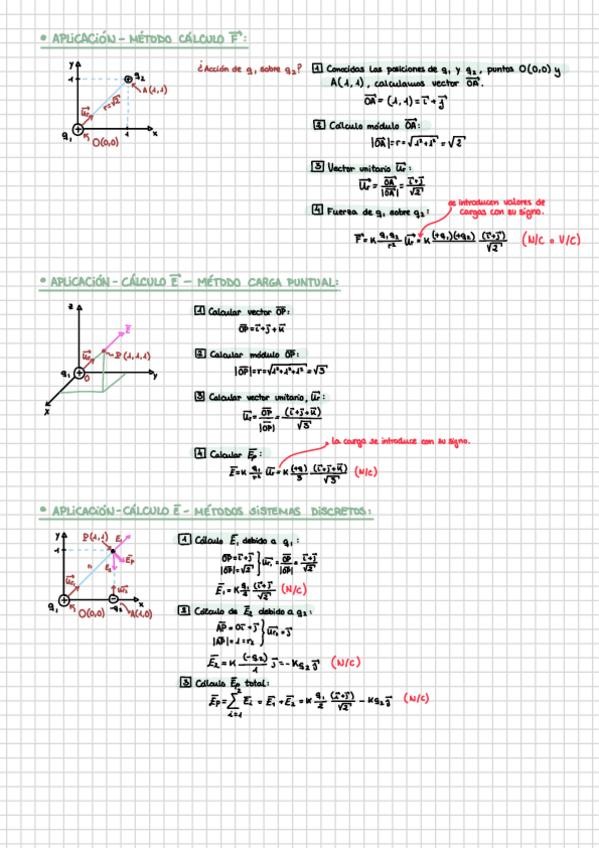 • APLICACIÓN - MÉTODO CÁLCULO F⃗:
y
1
q₂
A(1,1)
r=√2
u⃗r
q₁
O(0,0)
1
x
¿Acción de q₁ sobre q₂?
1 Conocidas las posiciones de q₁ y q₂, puntos O(0,0) y
A(1,1), calculamos vector O⃗A⃗.
O⃗A⃗ = (1,1) = i⃗ + j⃗
2 Cálculo módulo O⃗A⃗:
|O⃗A⃗| = r = √1²+1² = √2
3 Vector unitario u⃗r:
u⃗r = O⃗A⃗/|O⃗A⃗| = (i⃗+j⃗)/√2
4 Fuerza de q₁ sobre q₂:
se introducen valores de
cargas con su signo.
F⃗ = K q₁q₂/r² u⃗r = K (+q₁)(+q₂) (i⃗+j⃗)/√2 (N/C o V/C)
• APLICACIÓN - CÁLCULO E⃗ - MÉTODO CARGA PUNTUAL:
z
E⃗
P(1,1,1)
u⃗r
q₁
O
y
x
1 Calcular vector O⃗P⃗:
O⃗P⃗ = i⃗+j⃗+k⃗
2 Calcular módulo O⃗P⃗:
|O⃗P⃗| = r = √1²+1²+1² = √3
3 Calcular vector unitario, u⃗r:
u⃗r = O⃗P⃗/|O⃗P⃗| = (i⃗+j⃗+k⃗)/√3
la carga se introduce con su signo.
4 Calcular E⃗p:
E⃗ = K q₁/r² u⃗r = K (+q)/3 (i⃗+j⃗+k⃗)/√3 (N/C)
• APLICACIÓN - CÁLCULO E⃗ - MÉTODOS SISTEMAS DISCRETOS:
y
P(1,1)
E₁
1
E₂
E⃗p
q₁
O(0,0)
-q₂
A(1,0)
x
1 Cálculo E⃗₁ debido a q₁:
O⃗P⃗ = i⃗+j⃗
|O⃗P⃗| = √2 } u⃗r₁ = O⃗P⃗/|O⃗P⃗| = (i⃗+j⃗)/√2
E⃗₁ = K q₁/2 (i⃗+j⃗)/√2 (N/C)
2 Cálculo de E⃗₂ debido a q₂:
A⃗P⃗ = 0i⃗+j⃗
|A⃗P⃗| = 1 = r₂ } u⃗r₂ = j⃗
E⃗₂ = K (-q₂)/1 j⃗ = -Kq₂ j⃗ (N/C)
3 Cálculo E⃗p total:
E⃗p = Σ²ᵢ₌₁ E⃗ᵢ = E⃗₁ + E⃗₂ = K q₁/2 (i⃗+j⃗)/√2 - Kq₂ j⃗ (N/C)